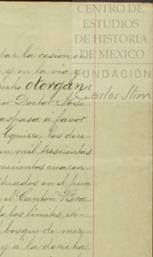 CENTRO DE
ESTUDIOS
DE HISTORIA
DE MEXICO
FUNDACIÓN
Carlos Slim
sar la cesion en
y en la via y
otorgan:
Doctor José
aspasa a favor
Aguirre, los dere
mil trescientas
cuaren
bicados en el pun
el Canton Bra
los límites, si-
bosque de mez
y a la derecha